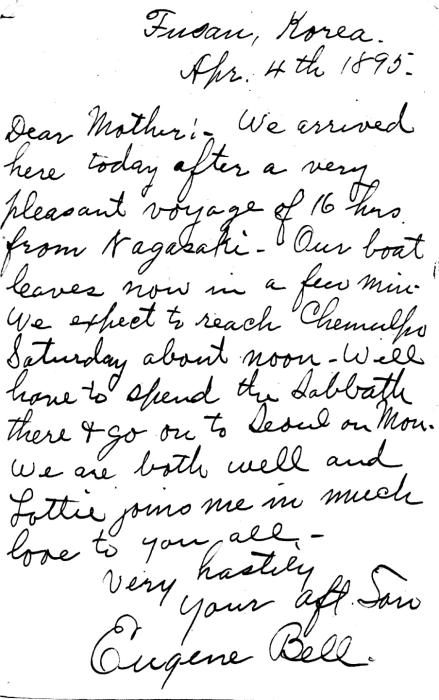 Fusan, Korea.
Apr. 4th 1895.
Dear Mother:- We arrived
here today after a very
pleasant voyage of 16 hrs.
from Nagasaki - Our boat
leaves now in a few min.
We expect to reach Chemulpo
Saturday about noon - Will
have to spend the Sabbath
there & go on to Seoul on Mon.
We are both well and
Lottie joins me in much
love to you all, -
Very hastily
your aff. Son
Eugene Bell.